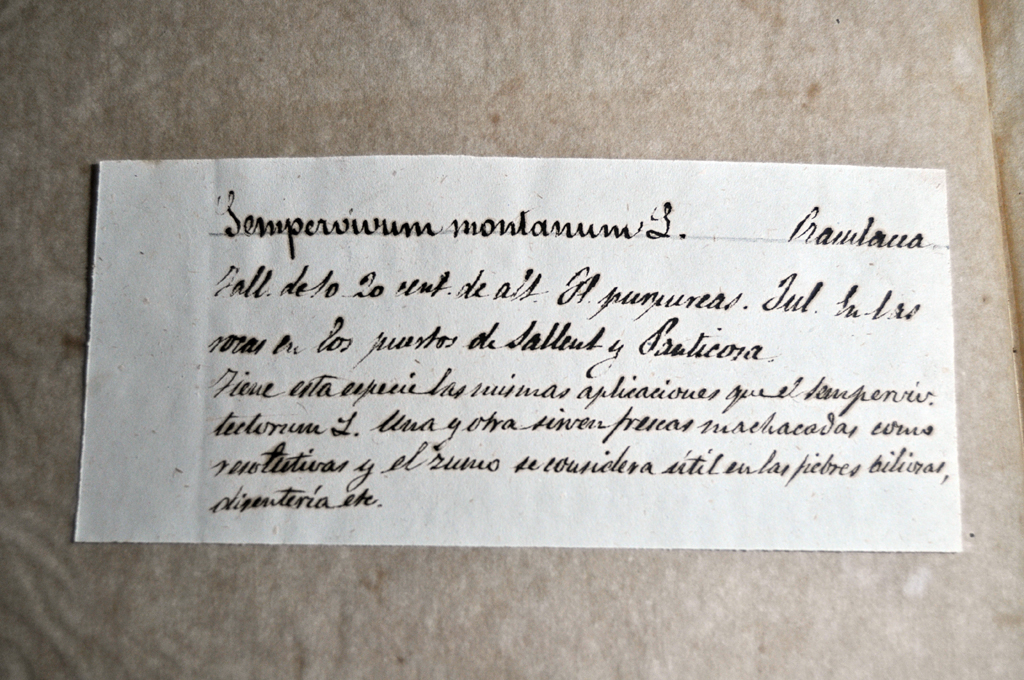 Sempervivum montanum L. Crasulacea
Tall. de 10 20 cent. de alt. Fl purpureas. Jul. En las
rocas en los puertos de Sallent y Panticosa.
Tiene esta especie las mismas aplicaciones que el semperviv.
tectorum L. Una y otra sirven frescas machacadas como
resolutivas y el zumo se considera útil en las fiebres biliosas,
disentería etc.